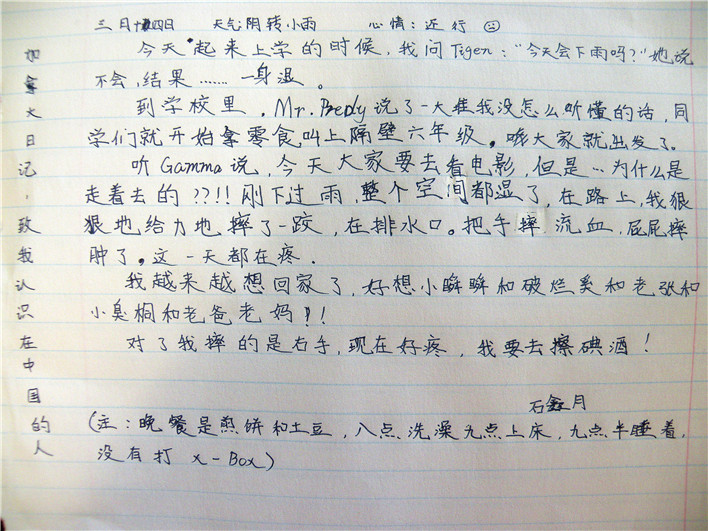 三月十四日 天气阴转小雨 心情:还行
今天起来上学的时候,我问Tigen:“今天会下雨吗?”她说
不会,结果……一身湿。
到学校里,Mr. Bredy说了一大堆我没怎么听懂的话,同
学们就开始拿零食叫上隔壁六年级。哦大家就出发了。
听Gamma说,今天大家要去看电影,但是…为什么是
走着去的???!!刚下过雨,整个空间都湿了,在路上,我狠
狠地给力地摔了一跤,在排水口。把手摔流血,屁屁摔
肿了。这一天都在疼.
我越来越想回家了,好想小瞬瞬和破烂奚和老张和
小臭桐和老爸老妈!!
对了我摔的是右手,现在好疼,我要去擦碘酒!
石鑫月
(注:晚餐是煎饼和土豆,八点洗澡九点上床,九点半睡着,
没有打X-Box)
加拿大日记,致我认识在中国的人